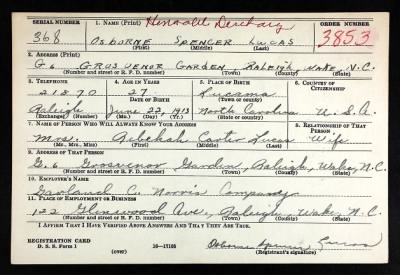 SERIAL NUMBER 1. NAME (Print) ORDER NUMBER
368 OSBORNE SPENCER LUCAS 3853
(First) (Middle) (Last)
2. ADDRESS (Print)
G6 GROSVENOR GARDEN, RALEIGH, WAKE, N.C.
(Number and street or R. F. D. number) (Town) (County) (State)
3. TELEPHONE 4. AGE IN YEARS 5. PLACE OF BIRTH 6. COUNTRY OF CITIZENSHIP
21870 27 Lucama
DATE OF BIRTH (Town or county)
Raleigh June 22, 1913 North Carolina U.S.A.
(Exchange) (Number) (Mo.) (Day) (Yr.) (State or country)
7. NAME OF PERSON WHO WILL ALWAYS KNOW YOUR ADDRESS 8. RELATIONSHIP OF THAT PERSON
Mrs. Rebekah Carter Lucas Wife
(Mr., Mrs., Miss) (First) (Middle) (Last)
9. ADDRESS OF THAT PERSON
G.6 Grosvenor Garden, Raleigh, Wake, N.C.
(Number and street or R. F. D. number) (Town) (County) (State)
10. EMPLOYER'S NAME
Garland C. Norris Company
11. PLACE OF EMPLOYMENT OR BUSINESS
122 Glenwood Ave., Raleigh, Wake, N.C.
(Number and street or R. F. D. number) (Town) (County) (State)
I AFFIRM THAT I HAVE VERIFIED ABOVE ANSWERS AND THAT THEY ARE TRUE.
REGISTRATION CARD
D. S. S. Form 1 (over) 16—17105 Osborne Spencer Lucas
(Registrant's signature)